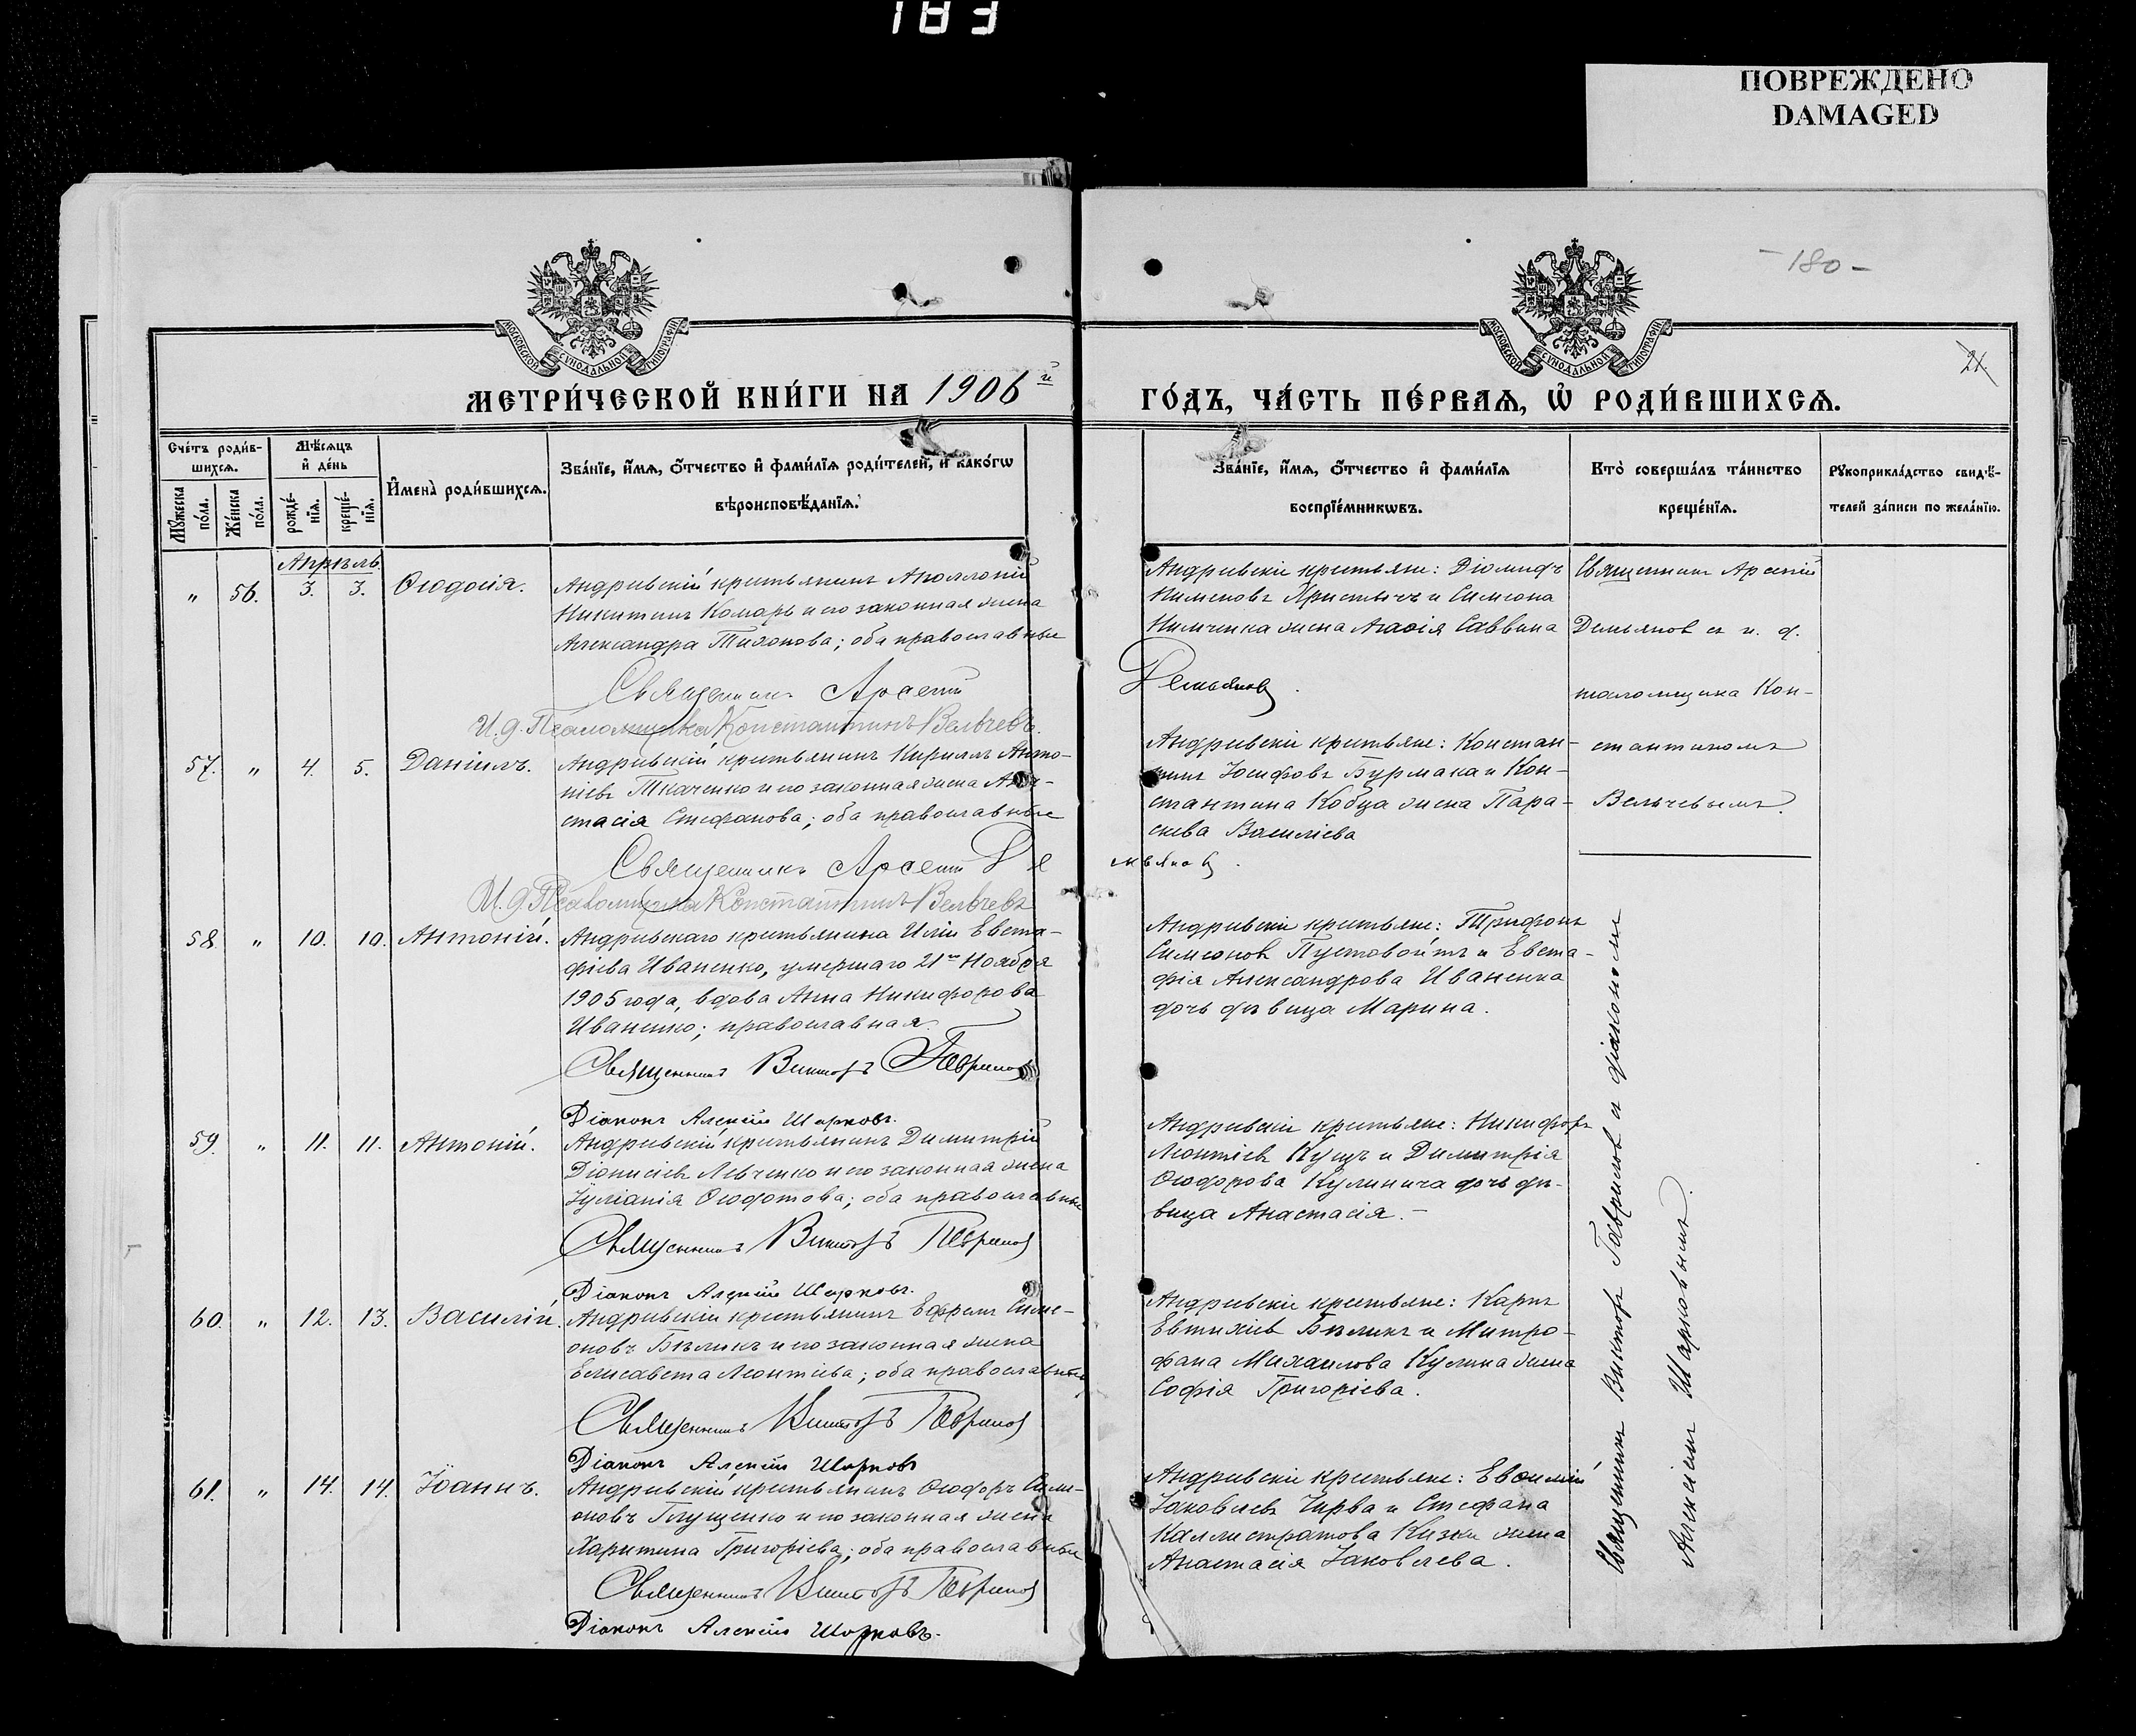 183
ПОВРЕЖДЕНО
DAMAGED
- 180 -
21.
МОСКОВСКОЙ СѴНОДАЛЬНОЙ ТИПОГРАФІИ
МОСКОВСКОЙ СѴНОДАЛЬНОЙ ТИПОГРАФІИ
МЕТРИ́ЧЕСКОЙ КНИ́ГИ НА 1906й
ГО́ДЪ, ЧА́СТЬ ПЕ́РВАЯ, Ѡ РОДИ́ВШИХСЯ.
Счетъ родив-
шихся.
Мужеска пола.
Женска пола.
Мѣсяцъ и день
рожде-
нія.
креще-
нія.
Имена родившихся.
Званіе, имя, отчество и фамилія родителей, и какогѡ
вѣроисповѣданія.
Званіе, имя, отчество и фамилія
воспріемникѡвъ.
Кто совершалъ таинство
крещенія.
Рукоприкладство свидѣ-
телей записи по желанію.
Апрѣль.
" 56. 3. 3. Ѳеодосія.
Андреевскій крестьянинъ Аполлоній
Никитинъ Комарь и его законная жена
Александра Тихонова; оба православные
Священникъ Арсеній
Демьяновъ.
И. д. Псаломщика Константинъ Вельчевъ.
Андреевскіе крестьяне: Діомидъ
Пименовъ Христичъ и Симеона
Нимченка жена Агаѳія Саввина
Священникъ Арсеній
Демьяновъ съ и. д.
псаломщика Кон-
стантиномъ
Вельчевымъ.
57. " 4. 5. Даніилъ.
Андреевскій крестьянинъ Кириллъ Анто-
ніевъ Ткаченко и его законная жена Ана-
стасія Стефанова; оба православные
Священникъ Арсеній Де
мьяновъ.
И. д. Псаломщика Константинъ Вельчевъ
Андреевскіе крестьяне: Констан-
тинъ Іосифовъ Бурмака и Кон-
стантина Кобца жена Пара-
скева Василіева
58. " 10. 10. Антоній.
Андреевскаго крестьянина Иліи Евста-
фіева Иваненко, умершаго 21го Ноября
1905 года, вдова Анна Никифорова
Иваненко; православная.
Священникъ Викторъ Гавриловъ
Діаконъ Алексій Шарковъ.
Андреевскіе крестьяне: Трифонъ
Симеоновъ Пустовойтъ и Евста-
фія Александрова Иваненка
дочь дѣвица Марина.
59. " 11. 11. Антоній.
Андреевскій крестьянинъ Димитрій
Діонисіевъ Левченко и его законная жена
Іуліанія Ѳеодотова; оба православные
Священникъ Викторъ Гавриловъ
Діаконъ Алексій Шарковъ.
Андреевскіе крестьяне: Никифоръ
Леонтіевъ Кущъ и Димитрія
Ѳеодорова Кулинича дочь дѣ-
вица Анастасія. -
60. " 12. 13. Василій.
Андреевскій крестьянинъ Ефремъ Симе-
оновъ Бѣликъ и его законная жена
Елисавета Леонтіева; оба православные
Священникъ Викторъ Гавриловъ
Діаконъ Алексій Шарковъ
Андреевскіе крестьяне: Карпъ
Евтихіевъ Бѣликъ и Митро-
фана Михаилова Кулика жена
Софія Григоріева.
61. " 14. 14. Іоаннъ.
Андреевскій крестьянинъ Ѳеодоръ Симе-
оновъ Глущенко и его законная жена
Харитина Григоріева; оба православные
Священникъ Викторъ Гавриловъ
Діаконъ Алексій Шарковъ.
Андреевскіе крестьяне: Евѳимій
Іаковлевъ Чирва и Стефана
Каллистратова жена
Анастасія Іаковлева.
Священникъ Викторъ Гавриловъ съ діакономъ
Алексіемъ Шарковымъ.